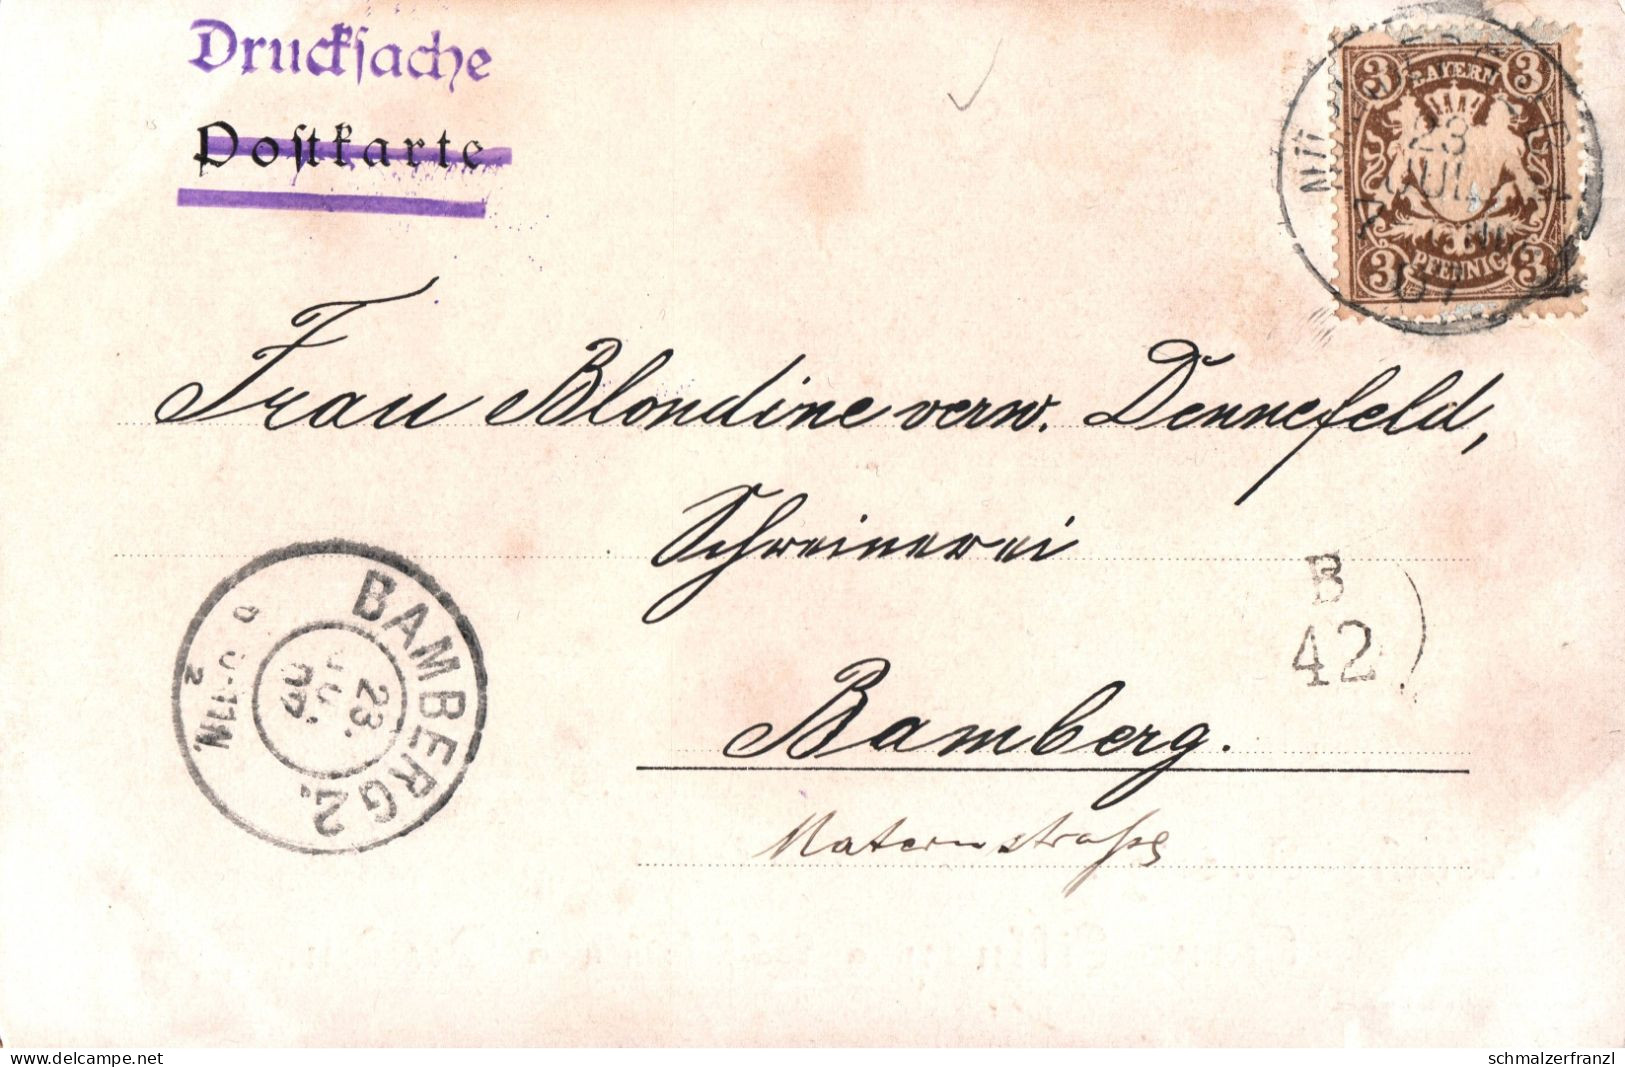 Drucksache
Postkarte
3 BAYERN 3
23
JUL
7
3 PFENNIG 3
Frau Blondine verw. Dennefeld,
Schreinerei
B
42
Bamberg.
Maternstraße
BAMBERG 2.
23.
JUL.
2
schmalzerfranzl
www.delcampe.net